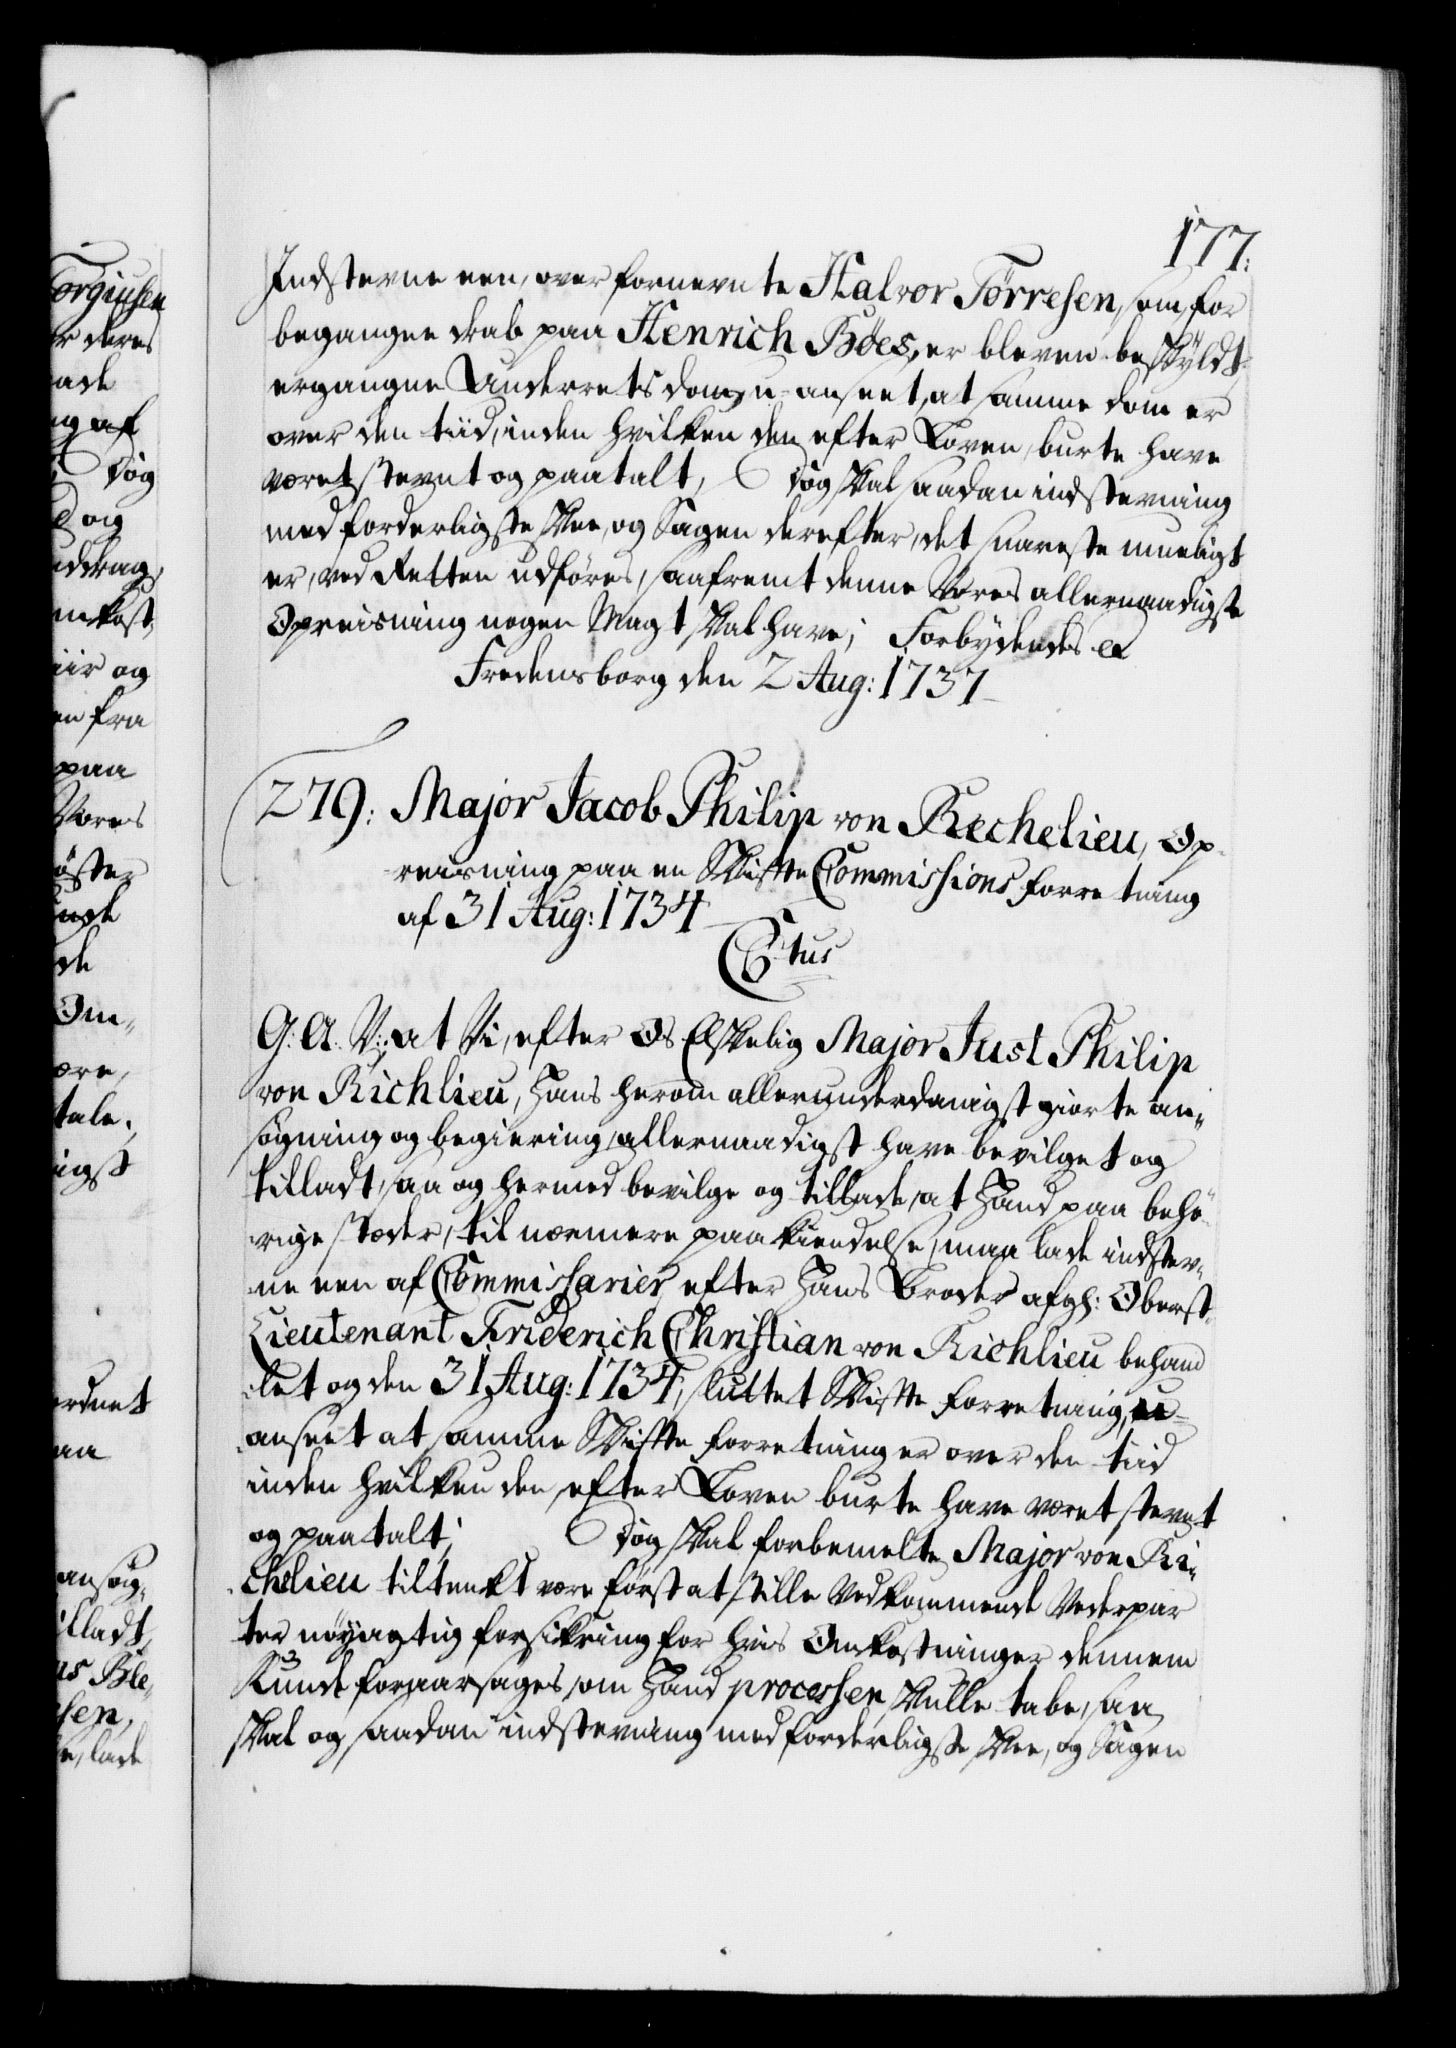 177:
Indstevne een, over fornevnte Halvor Törresen, som for
begangne drab paa Henrich Böes, er bleven beskÿldt,
ergangne Underretsdom, u-anseet, at samme dom er
over den tiid, inden hvilken den efter Loven, burte have
været stevnt og paatalt, Dog skal saadan indstevning
med forderligste skee, og Sagen derefter, det snareste mueligt
er, ved Retten udföres, saafremt denne Vores allernaadigste
Opreisning nogen Magt skal have; Forbÿdendes &
Fredensborg den 2 Aug: 1737
279: Major Jacob Philip von Rechelieu, Op-
reisning paa en Skifte Commissions forretning
af 31 Aug: 1734
C 6tus
G. A. V: at Vi, efter Os Elskelig Major Just Philip
von Richlieu, Hans herom allerunderdanigst giorte an-
søgning og begiering, allernaadigst have bevilget og
tilladt, saa og hermed bevilge og tillade, at Hand paa behö-
rige stæder, til nærmere paakiendelse, maa lade indstev-
ne een af Commissarier efter Hans Broder afgl: Oberst-
Lieutenant Friderich Christian von Richlieu behand
let og den 31 Aug: 1734, sluttet Skifte forretning, u-
anseet at samme Skifte forretning er over den tiid
inden hvilken den, efter Loven burte have været stevnt
og paatalt; Dog skal forbemelte Major von Ri-
chelieu tiltenkt være först at stille Vedkommende Vederpar
ter nöÿagtig forsikring for hvis Omkostninger dennem
Kunde foraarsages, om Hand processen skulle tabe, saa
skal og saadan indstevning med forderligste skee, og Sagen
orgiusen
r deres
ade
ig af
Dog
og
uddrag,
mkost,
iir og
en fra
paa
Vores
öster
de
Om-
ære,
tale;
igst
ordnet
aa
ansög-
illadt,
us Ble-
sen,
lade